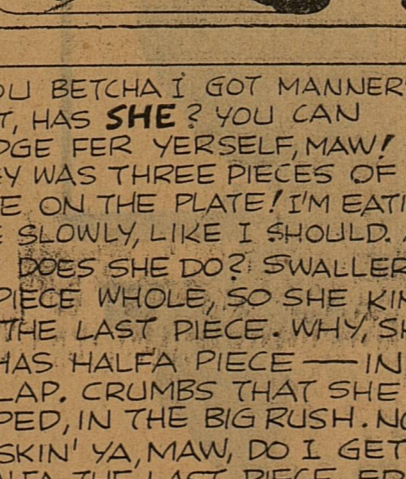 OU BETCHA I GOT MANNER
T, HAS SHE? YOU CAN
DGE FER YERSELF, MAW!
EY WAS THREE PIECES OF
E ON THE PLATE! I'M EATI
SLOWLY, LIKE I SHOULD. A
DOES SHE DO? SWALLER
PIECE WHOLE, SO SHE KIN
THE LAST PIECE. WHY, SH
HAS HALFA PIECE — IN
LAP. CRUMBS THAT SHE
PED, IN THE BIG RUSH. NO
SKIN' YA, MAW, DO I GET
LFA THE LAST PIECE, ER